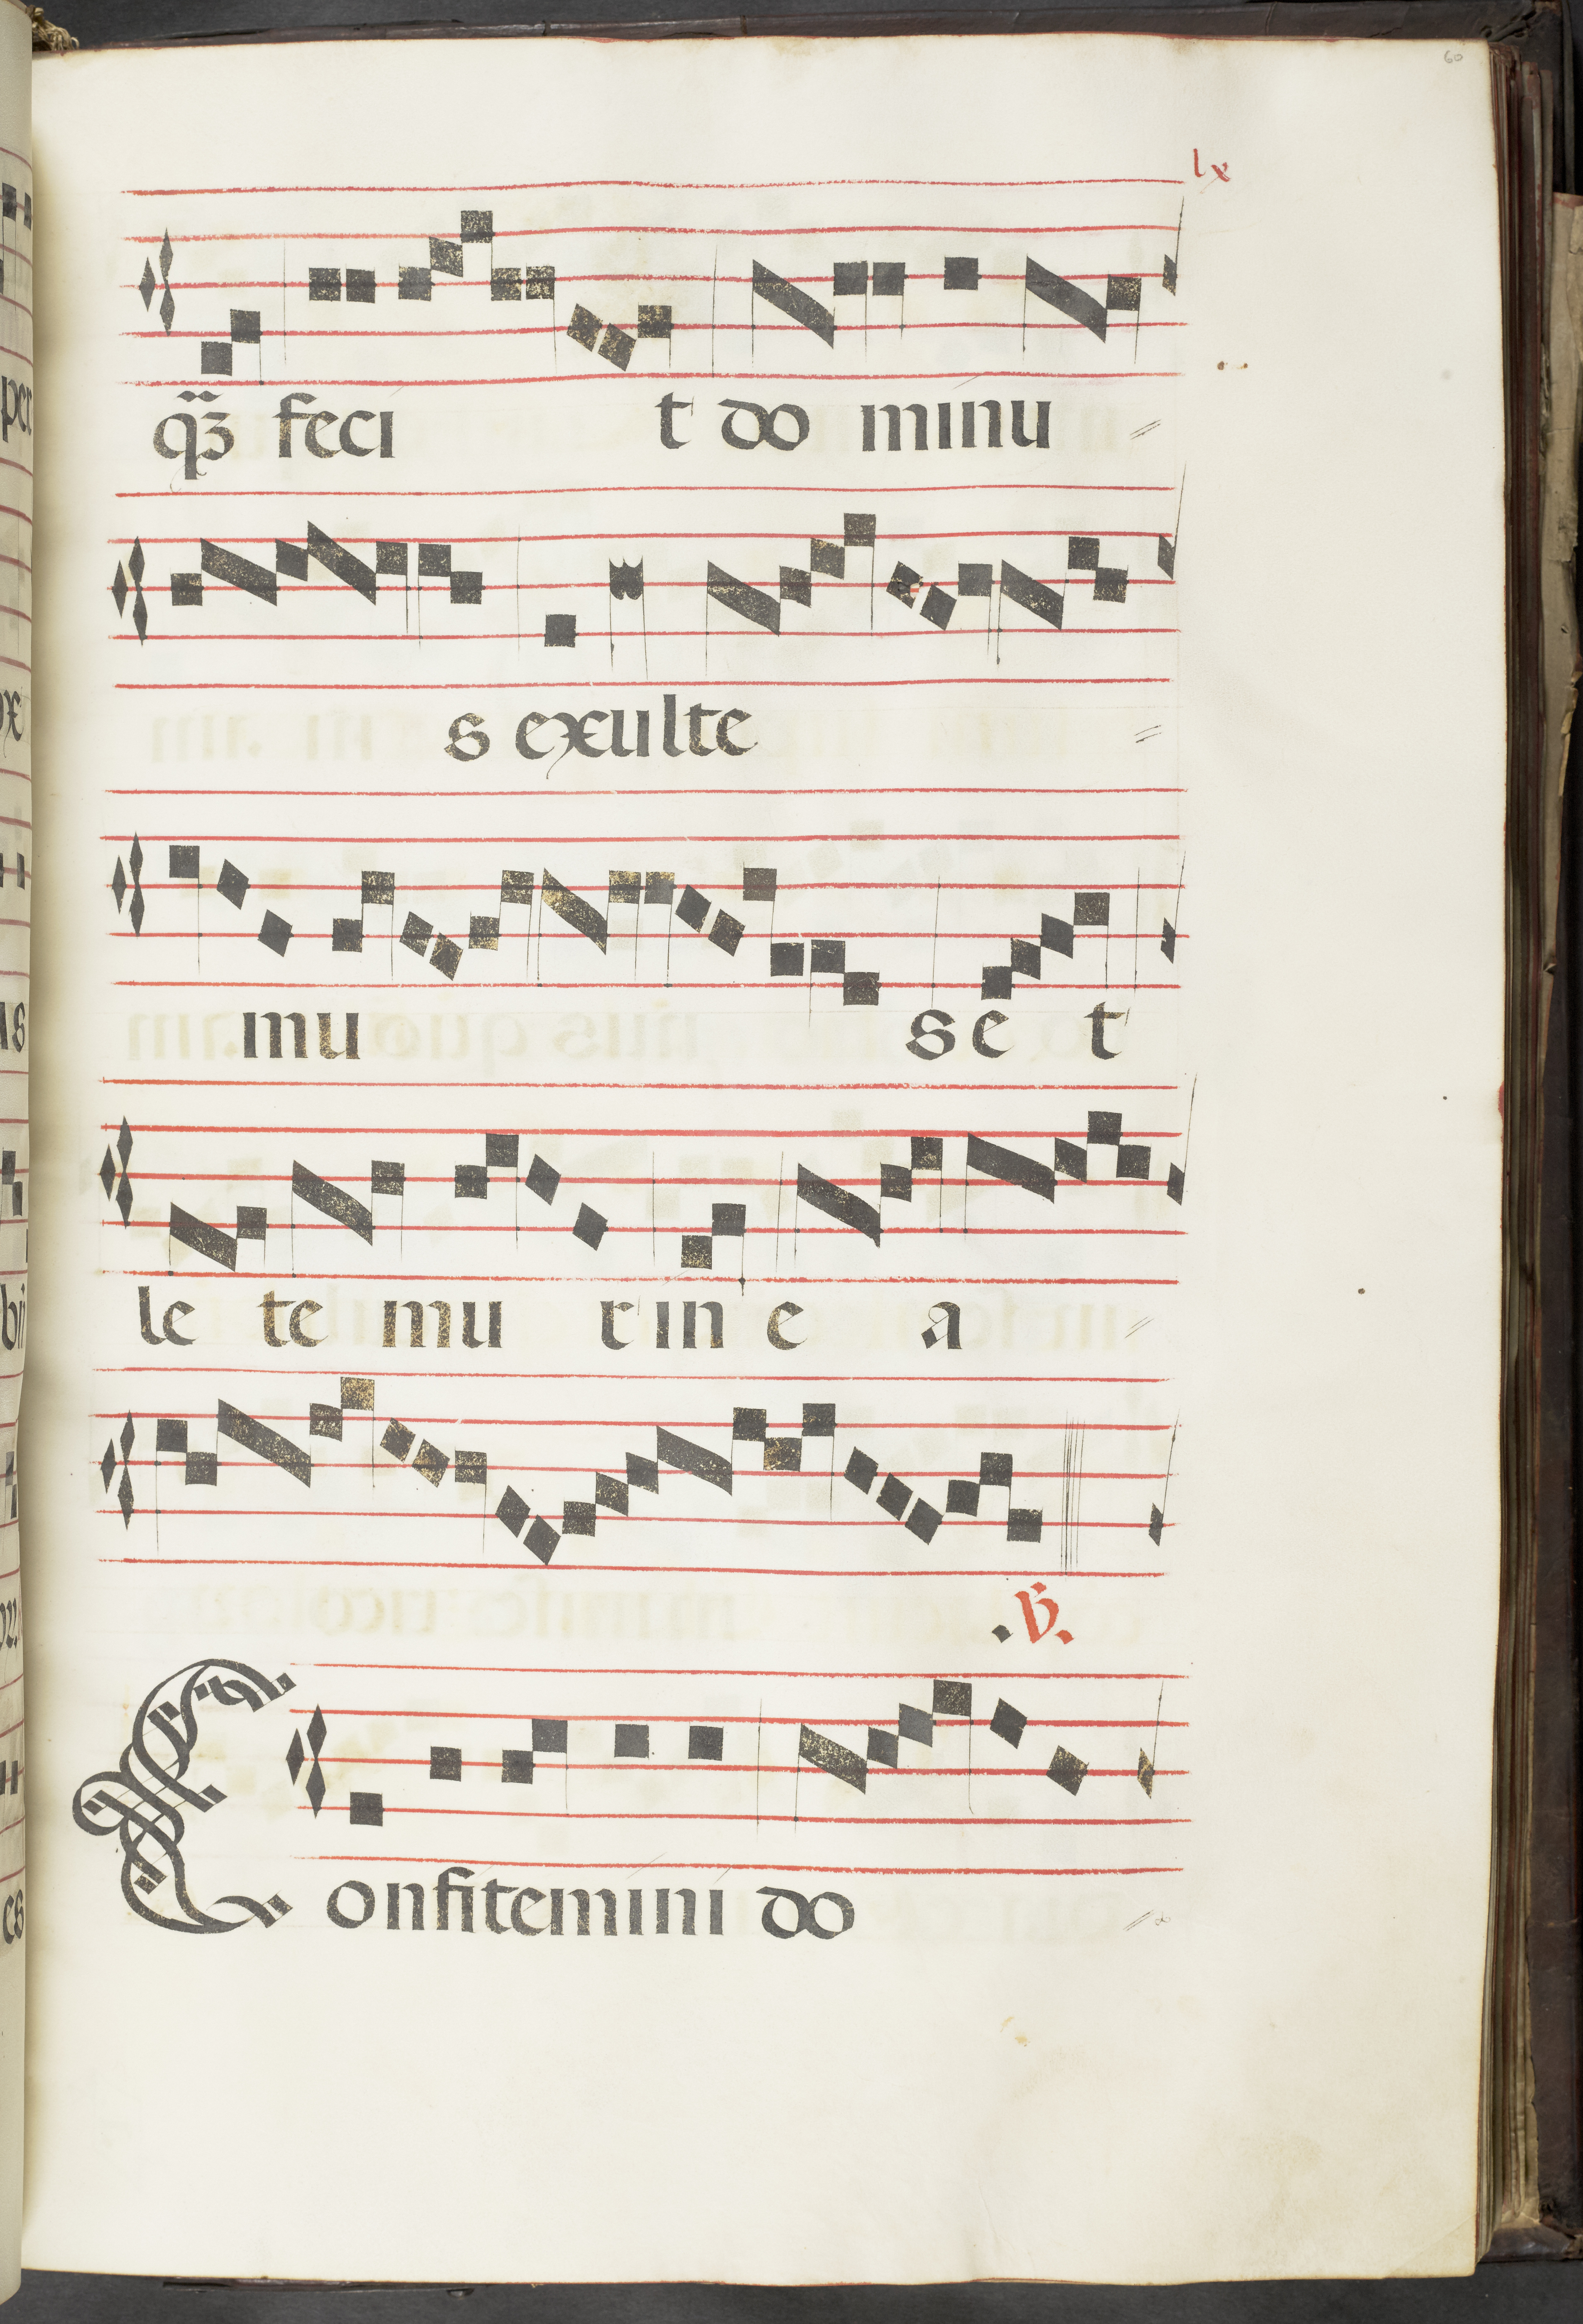 60
lx
q̃ʒ feci t do minu =
s exulte =
mu se t
le te mu r in e a =
.V̄.
Confitemini do =